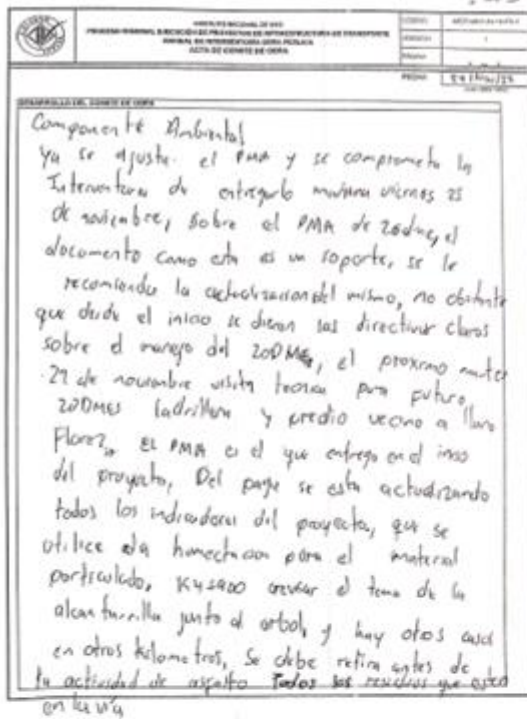 INSTITUTO NACIONAL DE VIAS
PROCESO MISIONAL EJECUCIÓN DE PROYECTOS DE INFRAESTRUCTURA DE TRANSPORTE
MANUAL DE INTERVENTORIA OBRA PÚBLICA
ACTA DE COMITÉ DE OBRA
CÓDIGO
VERSIÓN 1
PÁGINA
FECHA
DESARROLLO DEL COMITÉ DE OBRA
Componente Ambiental
ya se ajusta el PMA y se compromete la
Interventoria de entregarlo mañana viernes 25
de noviembre, sobre el PMA de zodme, el
documento como esta es un soporte, se le
recomienda la actualizacion del mismo, no obstante
que desde el inicio se dieron las directivas claras
sobre el manejo del ZODMEs, el proximo martes
29 de noviembre visita tecnica para futuro
ZODMES ladrillera y predio vecino a
Florez, EL PMA es el que entrego en el inicio
del proyecto, Del se esta actualizando
todos los indicadores del proyecto, que se
utilice la humectacion para el material
particulado, revisar el tema de la
alcantarilla junto al arbol, y hay otros casos
en otros kilometros, Se debe retira antes de
la actividad de asfalto Todos los residuos que esten
en la via